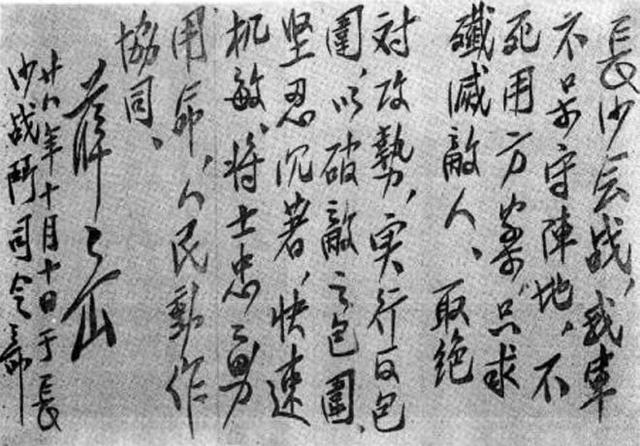 長沙会战,我軍
不呆守陣地,不
死用方案,只求
殲滅敵人、取绝
对攻勢,实行反包
圍,以破敵之包圍、
坚忍沉著,快速
机敏、将士忠勇
用命,人民動作
協同、
薛岳
廿八年十月十日于長
沙战鬥司令部